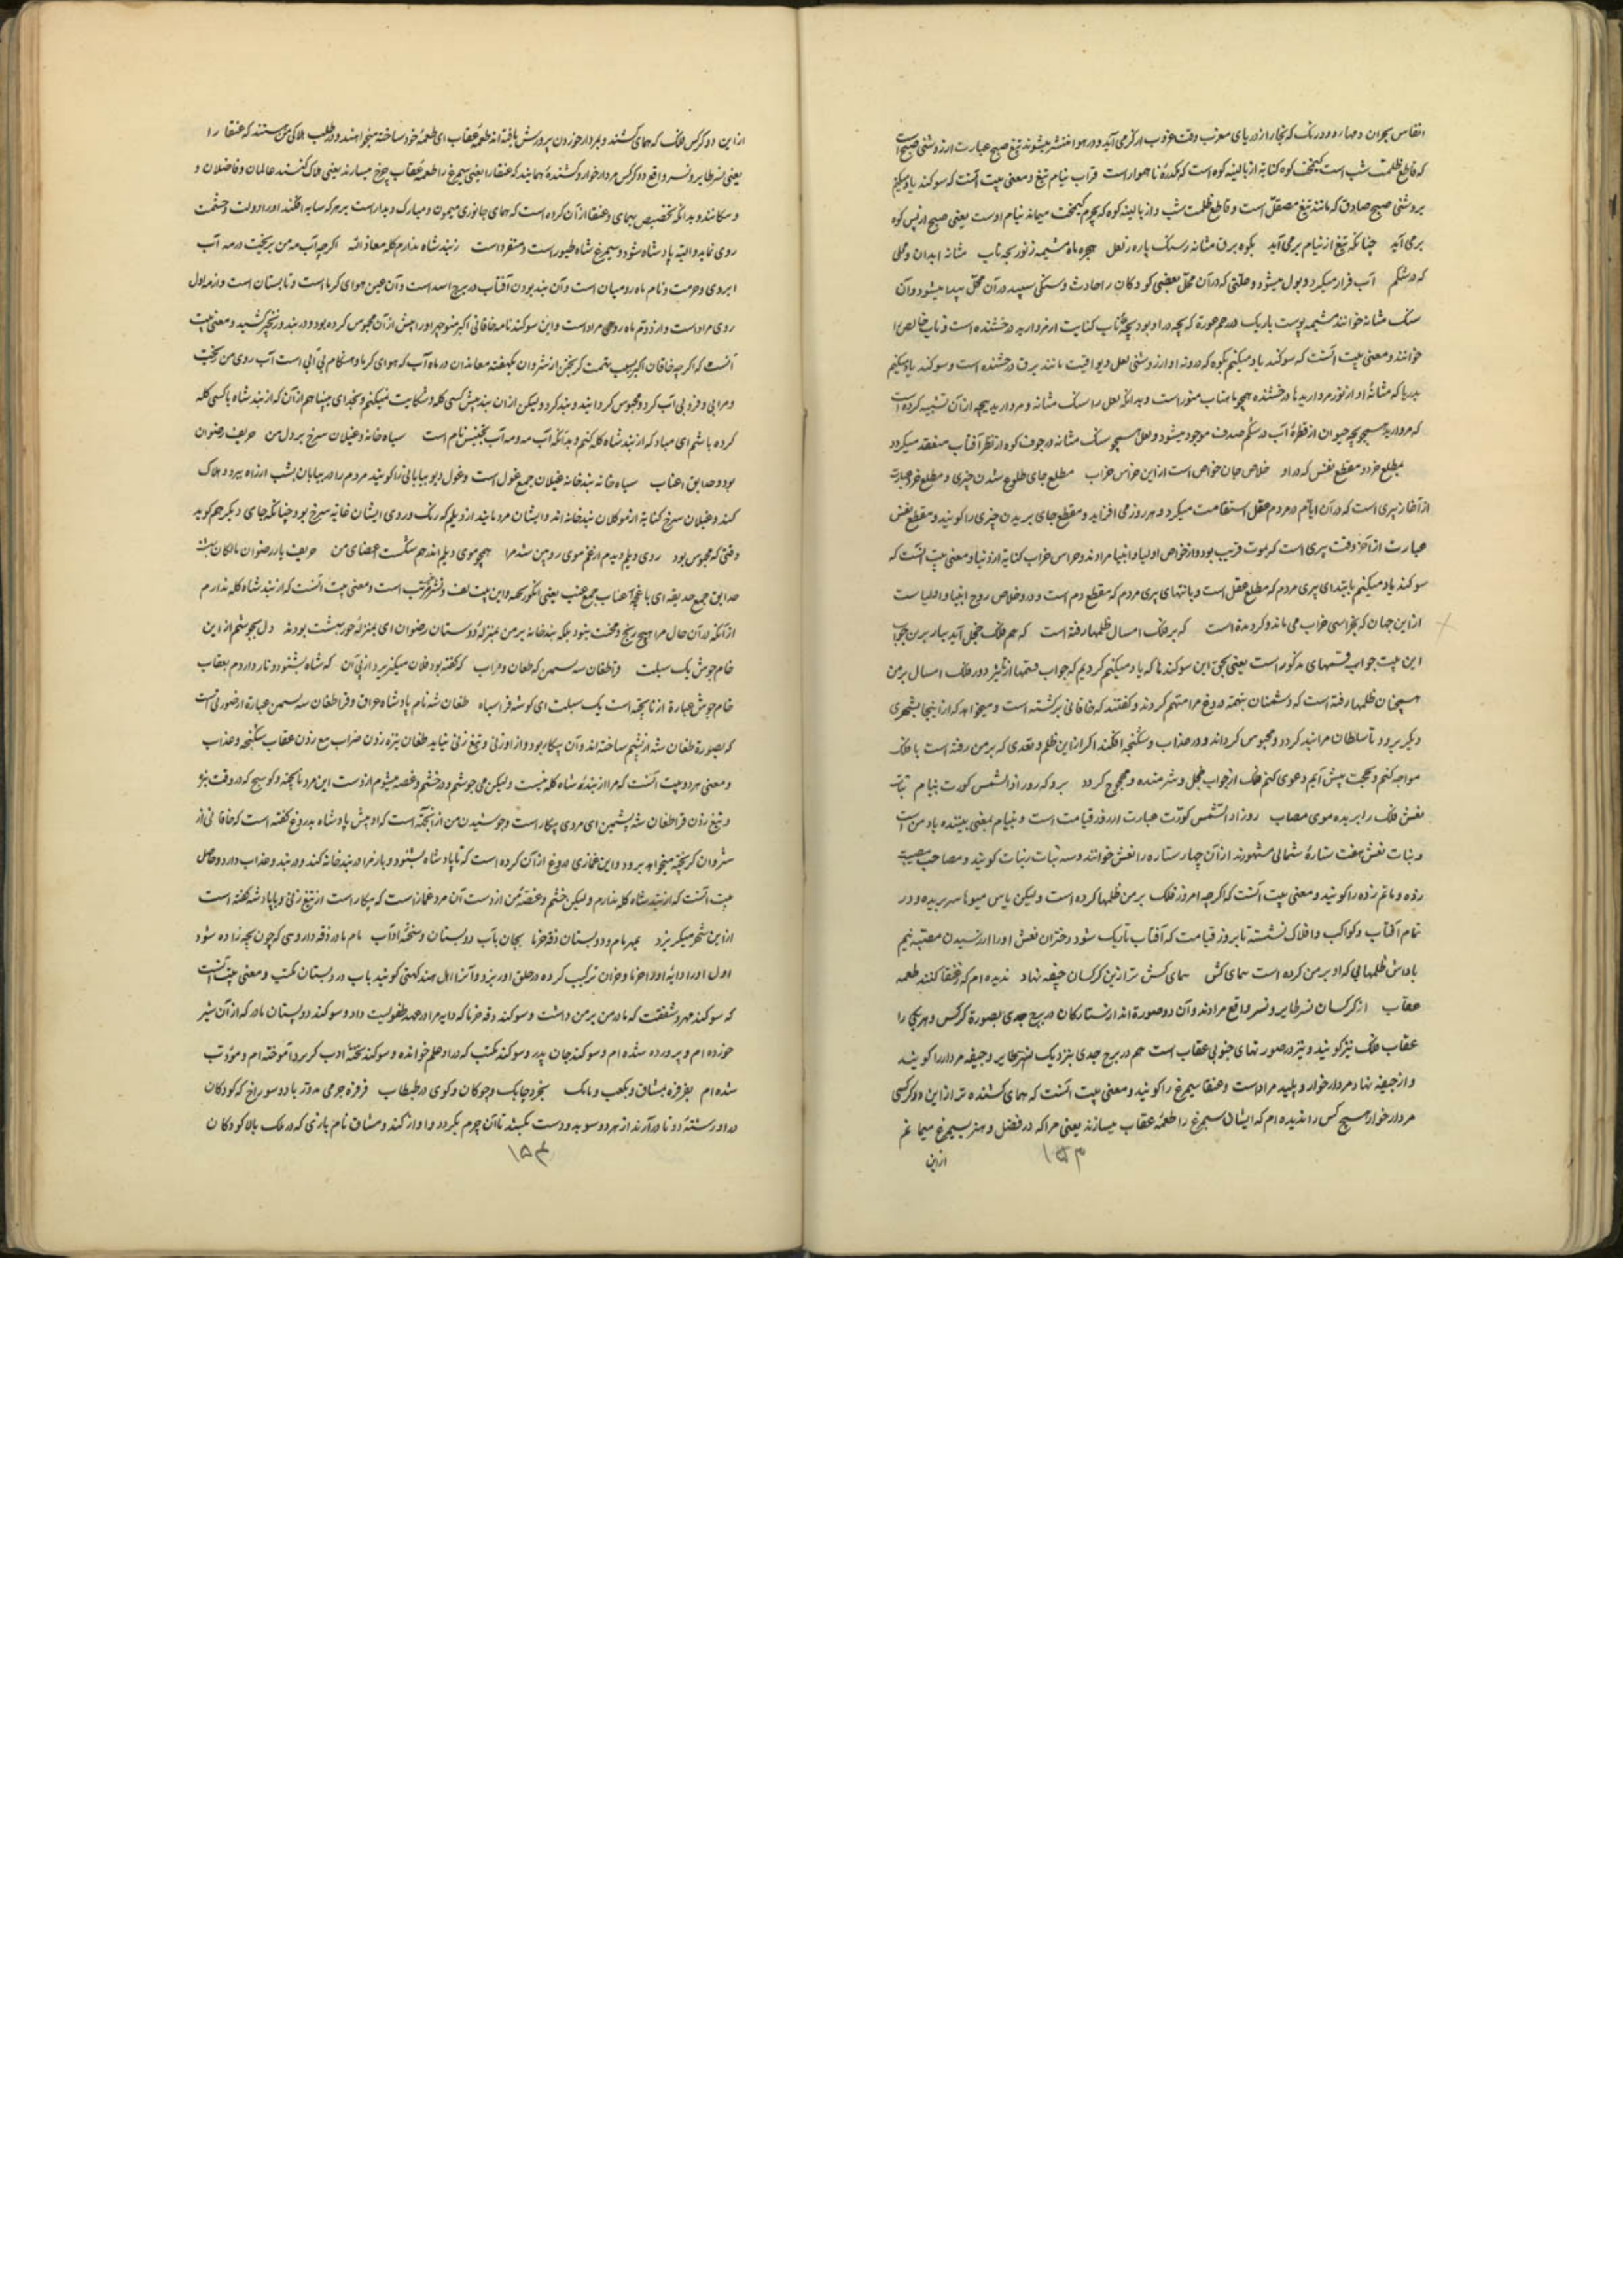 انفاس بحران دمها رود ورنک که بخار از دریای مغرب وقت غروب ار کرمی آید و در هوا منتشر میشوند تیغ صبح عبارت از روشنی صبح است
که قاطع ظلمت شب است کیمخت کوه کنایة از بالینه کوه است که بلکدرهٔ ناهموار است قراب نیام تیغ و معنی بیت آنست که سوکند یاد میکنم
بروشنی صبح صادق که مانند تیغ مصقل است و قاطع ظلمت شب و از بالینه کوه که بچرم کیمخت میماند نیام اوست یعنی صبح از پس کوه
برمی آید چنانکه تیغ از نیام برمی آید بکوه برق مثانه ز سنک پاره ز لعل بهجره ماه مشیمه ز نور بچه ناب مثانه ابدان و محلی
که در شکم آب قرار میکیرد و بول میشود و علتی که در آن محل بعضی کودکان را حادث و سنکی سپید در آن محل پیدا میشود و آن
سنک مثانه خوانند مشیمه پوست باریک در رحم عورة که بچه در او بود بچه ناب کنایت از مروارید درخشنده است و ناب خالص را
خوانند و معنی بیت آنست که سوکند یاد میکنم بکوه که درونه او از روشنی لعل و یواقیت مانند برق درخشنده است و سوکند یاد میکنم
بدریا که مثانهٔ او از نور مرواریدها درخشنده همچو ماهتاب منور است و بدانکه لعل را سنک مثانه و مروارید بچه از آن تشبیه کرده است
که مروارید همچو بچه حیوان از قطرهٔ آب در شکم صدف موجود میشود و لعل همچو سنک مثانه در جوف کوه از نظر آفتاب منعقد میکردد
بمطلع خرد و مقطع نفس که در او خلاص جان خواص است از این خراس خراب مطلع جای طلوع شدن چیزی و مطلع خرد عبارت
از آغاز پیری است که در آن ایام در مردم عقل استقامت میکیرد و هر روز می افزاید و مقطع جای بریدن چیزی را کویند و مقطع نفس
عبارت از آخر وقت پیری است که بموت قریب بود و از خواص اولیا و انبیا مرادند و خراس خراب کنایة از دنیا و معنی بیت آنست که
سوکند یاد میکنم بابتدای پیری مردم که مطلع عقل است و بانتهای پیری مردم که مقطع دم است و در و خلاص روح انبیا و اولیاست
از این جهان که بخراسی خراب می ماند و کردنده است که بر فلک امسال ظلمها رفته است که هم فلک خجل آید ببار برن جواب
این بیت جواب قسمهای مذکور است یعنی بحق این سوکندها که یاد میکنم کردیم که جواب قسمها از تاثیر دور فلک امسال بر من
همچنان ظلمها رفته است که دشمنان بتهمة دروغ مرا متهم کردند و کفتند که خاقانی برکشته است و میخواهد که از اینجا بشهری
دیکر برود تا سلطان مرا بند کردد و محبوس کرداند و در عذاب و شکنجه افکند اکر از این ظلم و تعدی که بر من رفته است با فلک
مواجه کنم و بحجت پیش آیم و دعوی کنم فلک از جواب خجل و شرمنده و محجوج کردد برو که روز اذا الشمس کورت بنیام بنات
نعش فلک را بریده موی مصاب روز اذ الشمس کورت عبارت از روز قیامت است و بنیام بمعنی بینندهٔ یاد من است
و بنات نعش هفت ستارهٔ شمالی مشهورند از آن چهار ستاره را نعش خوانند و سه بنات را بنات کویند و مصاحب مصیبت
زده و ماتم زده را کویند و معنی بیت آنست که اکرچه امروز فلک بر من ظلمها کرده است ولیکن باس میوها سر بریده و در
تمام آفتاب و کواکب و افلاک نشسته تا بروز قیامت که آفتاب تاریک شود دختران نعش او را از رسیدن مصیبة بنیم
باداش ظلمهایی که او بر من کرده است همای کش همای کش تر از این کرکسان جیفه نهاد ندیده ام که ز عنقا کنند طعمه
عقاب از کرکسان نسر طایر و نسر واقع مرادند و آن دو صورة اند از ستارکان در برج جدی بصورة کرکس و هر یکی را
عقاب فلک نیز کویند و نیز در صورتهای جنوبی عقاب است هم در برج جدی بنزدیک نسر طایر و جیفه مردار را کویند
و از جیفه نهاد مردار خوار و پلید مراد است و عنقا سیمرغ را کویند و معنی بیت آنست که همای کشنده تر از این دو کرکس
مردار خوار هیچ کس را ندیده ام که ایشان سیمرغ را طعمه عقاب میسازند یعنی مرا که در فضل و هنر بسیمرغ میمانم
از این
۱۵۳
از این دو کرکس فلک که همای کشند و بمردار خوردن پرورش یافته اند طعمه عقاب ای طعمهٔ خود ساخته میخواهند و در طلب هلاکی من هستند که عنقا را
یعنی نسر طایر و نسر واقع دو کرکس مردار خوار و کشندهٔ همایند که عنقا را یعنی سیمرغ را طعمه عقاب چرخ میسازند یعنی هلاک کنند عالمان و فاضلان و
و بدانکه تخصیص بهمای و عنقا از آن کرده است که همای جانوری میمون و مبارک دیدار است بر هر که سایه افکند او را دولت و حشمت
روی نماید و البته پادشاه شود و سیمرغ شاه طیور است و منفرد است ز بند شاه ندارم کله معاذ الله اکرچه آب مه من بریخت در مه آب
ابروی و حرمت و نام ماه رومیان است و آن بند بودن آفتاب در برج اسد است و آن عین هوای کرما است و تابستان است و از مه اول
روی مراد است و از دوم ماه رومی مراد است و این سوکند نامه خاقانی اکبر منوچهر او را پیش از آن محبوس کرده بود و در بند و زنجیر کشید و معنی بیت
آنست که اکرچه خاقان اکبر بسبب تهمت کریختن از شروان بکفته معاندان در ماه آب که هوای کرما و هنکام بی آبی است آب روی من بریخت
و مرا بی و قر و بی آب کرد و محبوس کردانید و بند کرد ولیکن از آن بند پیش کسی کله و شکایت نمیکنم و بخدای میپناهم از آن که از بند شاه با کسی کله
کرده باشم ای مباد که از بند شاه کله کنم و بدانکه آب مه و مه آب تجنیس تام است سیاه خانه و غیلان سرخ بر دل من حریف رضوان
بود و حدایق اعناب سیاه خانه بندخانه غیلان جمع غول است و غول دیو بیابانی را کویند مردم را در بیابان بشب از راه ببرد و هلاک
کند و غیلان سرخ کنایة از موکلان بندخانه اند و ایشان مردمانند از دیلم که رنک و روی ایشان غایة سرخ بود چنانکه جای دیکر هم کوید
وقتی که محبوس بود روی دیلم دیدم از غم موی زوبین شد مرا همچو موی دیلم اندر هم شکست اعضای من حریف یار رضوان مالکان بهشت
حدایق جمع حدیقه ای باغچها اعناب جمع عنب یعنی انکور و این بیت لف و نشر مرتب است و معنی بیت آنست که از بند شاه کله ندارم
از آنکه در آن حال مرا هیچ رنج و محنت نبود بلکه بندخانه بر من بمنزلهٔ دوستان رضوان ای بمنزلهٔ حور بهشت بودند دل بجوشم از این
خام جوش یک سبلت قراطغان سه پشمین که طغان و ضراب که کفته بود فلان میکریزد از پی آن که شاه بشنود و باز داردم بعقاب
خام جوش عبارة از ناپخته است یک سبلت ای کوشه قر اسیاه طغان شه نام پادشاه عراق و قراطغان سه پشمین عبارة از صورتی است
که بصورة طغان شه از پشم ساخته اند و آن بیکار بود و از او زنی و تیغ زنی نیاید طغان نیزه زدن ضراب تیغ زدن عقاب شکنجه و عذاب
و معنی هر دو بیت آنست که مرا از بندهٔ شاه کله نیست ولیکن می جوشم و در خشم و غصه میشوم از دست این مرد ناپخته و کوسج که در وقت نیزه
و تیغ زدن قراطغان شه پشمین ای مردی بیکار است و جوشیدن من از آنجهة است که او پیش پادشاه بدروغ کفته است که خاقانی از
شروان کریخته میخواهد برود و این غمازی دروغ از آن کرده است که تا پادشاه بشنود و باز مرا در بندخانه کند و در بند و عذاب دارد و حاصل
بیت آنست که از بند شاه کله ندارم ولیکن خشم و غصهٔ من از دست آن مرد غماز است که بیکار است از تیغ زنی و با پادشه کفته است
از این شهر میکریزد بمهر مام و دو بستان و قه خرما بجان باب و دبستان و تختهٔ آداب مام مادر و قه داروسی که چون بچه زاده شود
اول او را دایه او از خرما و خزان ترکیب کرده در حلق او ریزد و آنرا اهل هند کهتی کویند باب در دبستان مکتب و معنی بیت آنست
که سوکند مهر و شفقت که مادر من بر من داشت و سوکند و قه خرما که دایه مرا در عهد طفولیت داد و سوکند دو پستان مادر که از آن شیر
خورده ام و پرورده شده ام و سوکند جان پدر و سوکند مکتب که در او علم خوانده و سوکند تختهٔ ادب که بر او آموخته ام و مودب
شده ام بفرفره بمشاق و بکعب و مامک بخرد چابک و چوکان و کوی در طبطاب فرفره جرمی مدور با دو سوراخ که کودکان
در او رشتهٔ دو تا در آرند از هر دو سو بدو دست بکشند تا آن جرم بکردد و آواز کند و مشاق نام بازی که در ملک بالا کودکان
۱۵۴